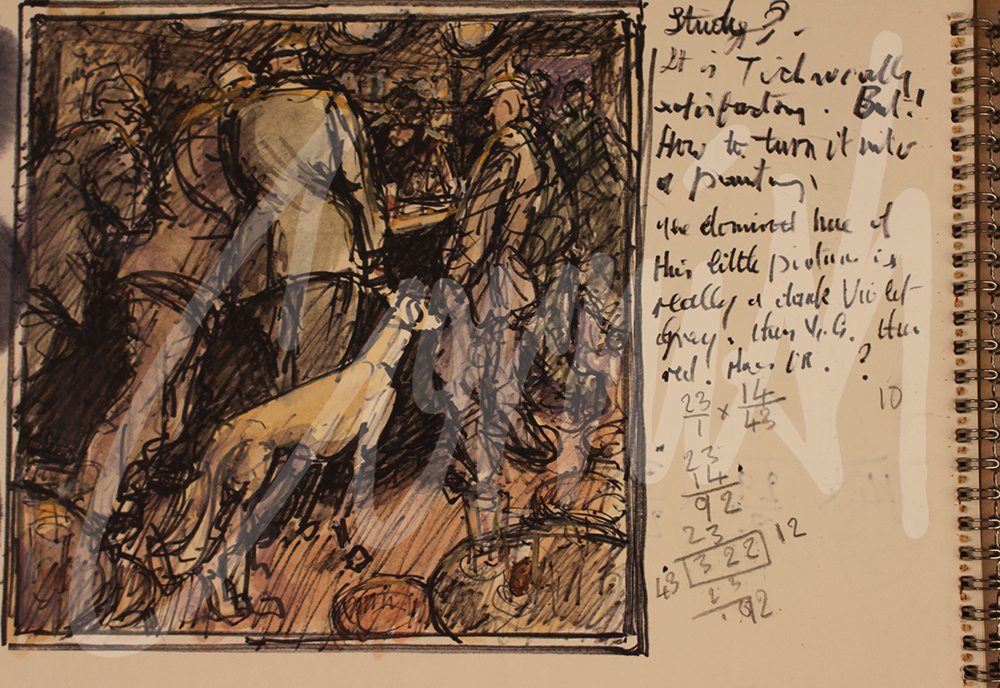 Study?.
It is Technically
satisfactory. But!
How to turn it into
a painting.
The dominant hue of
this little picture is
really a dark Violet
Grey. then Y.G. then
red!
?
23/1 × 14/43
10
23
14
92
23
322
12
43
23
.92
Cornish